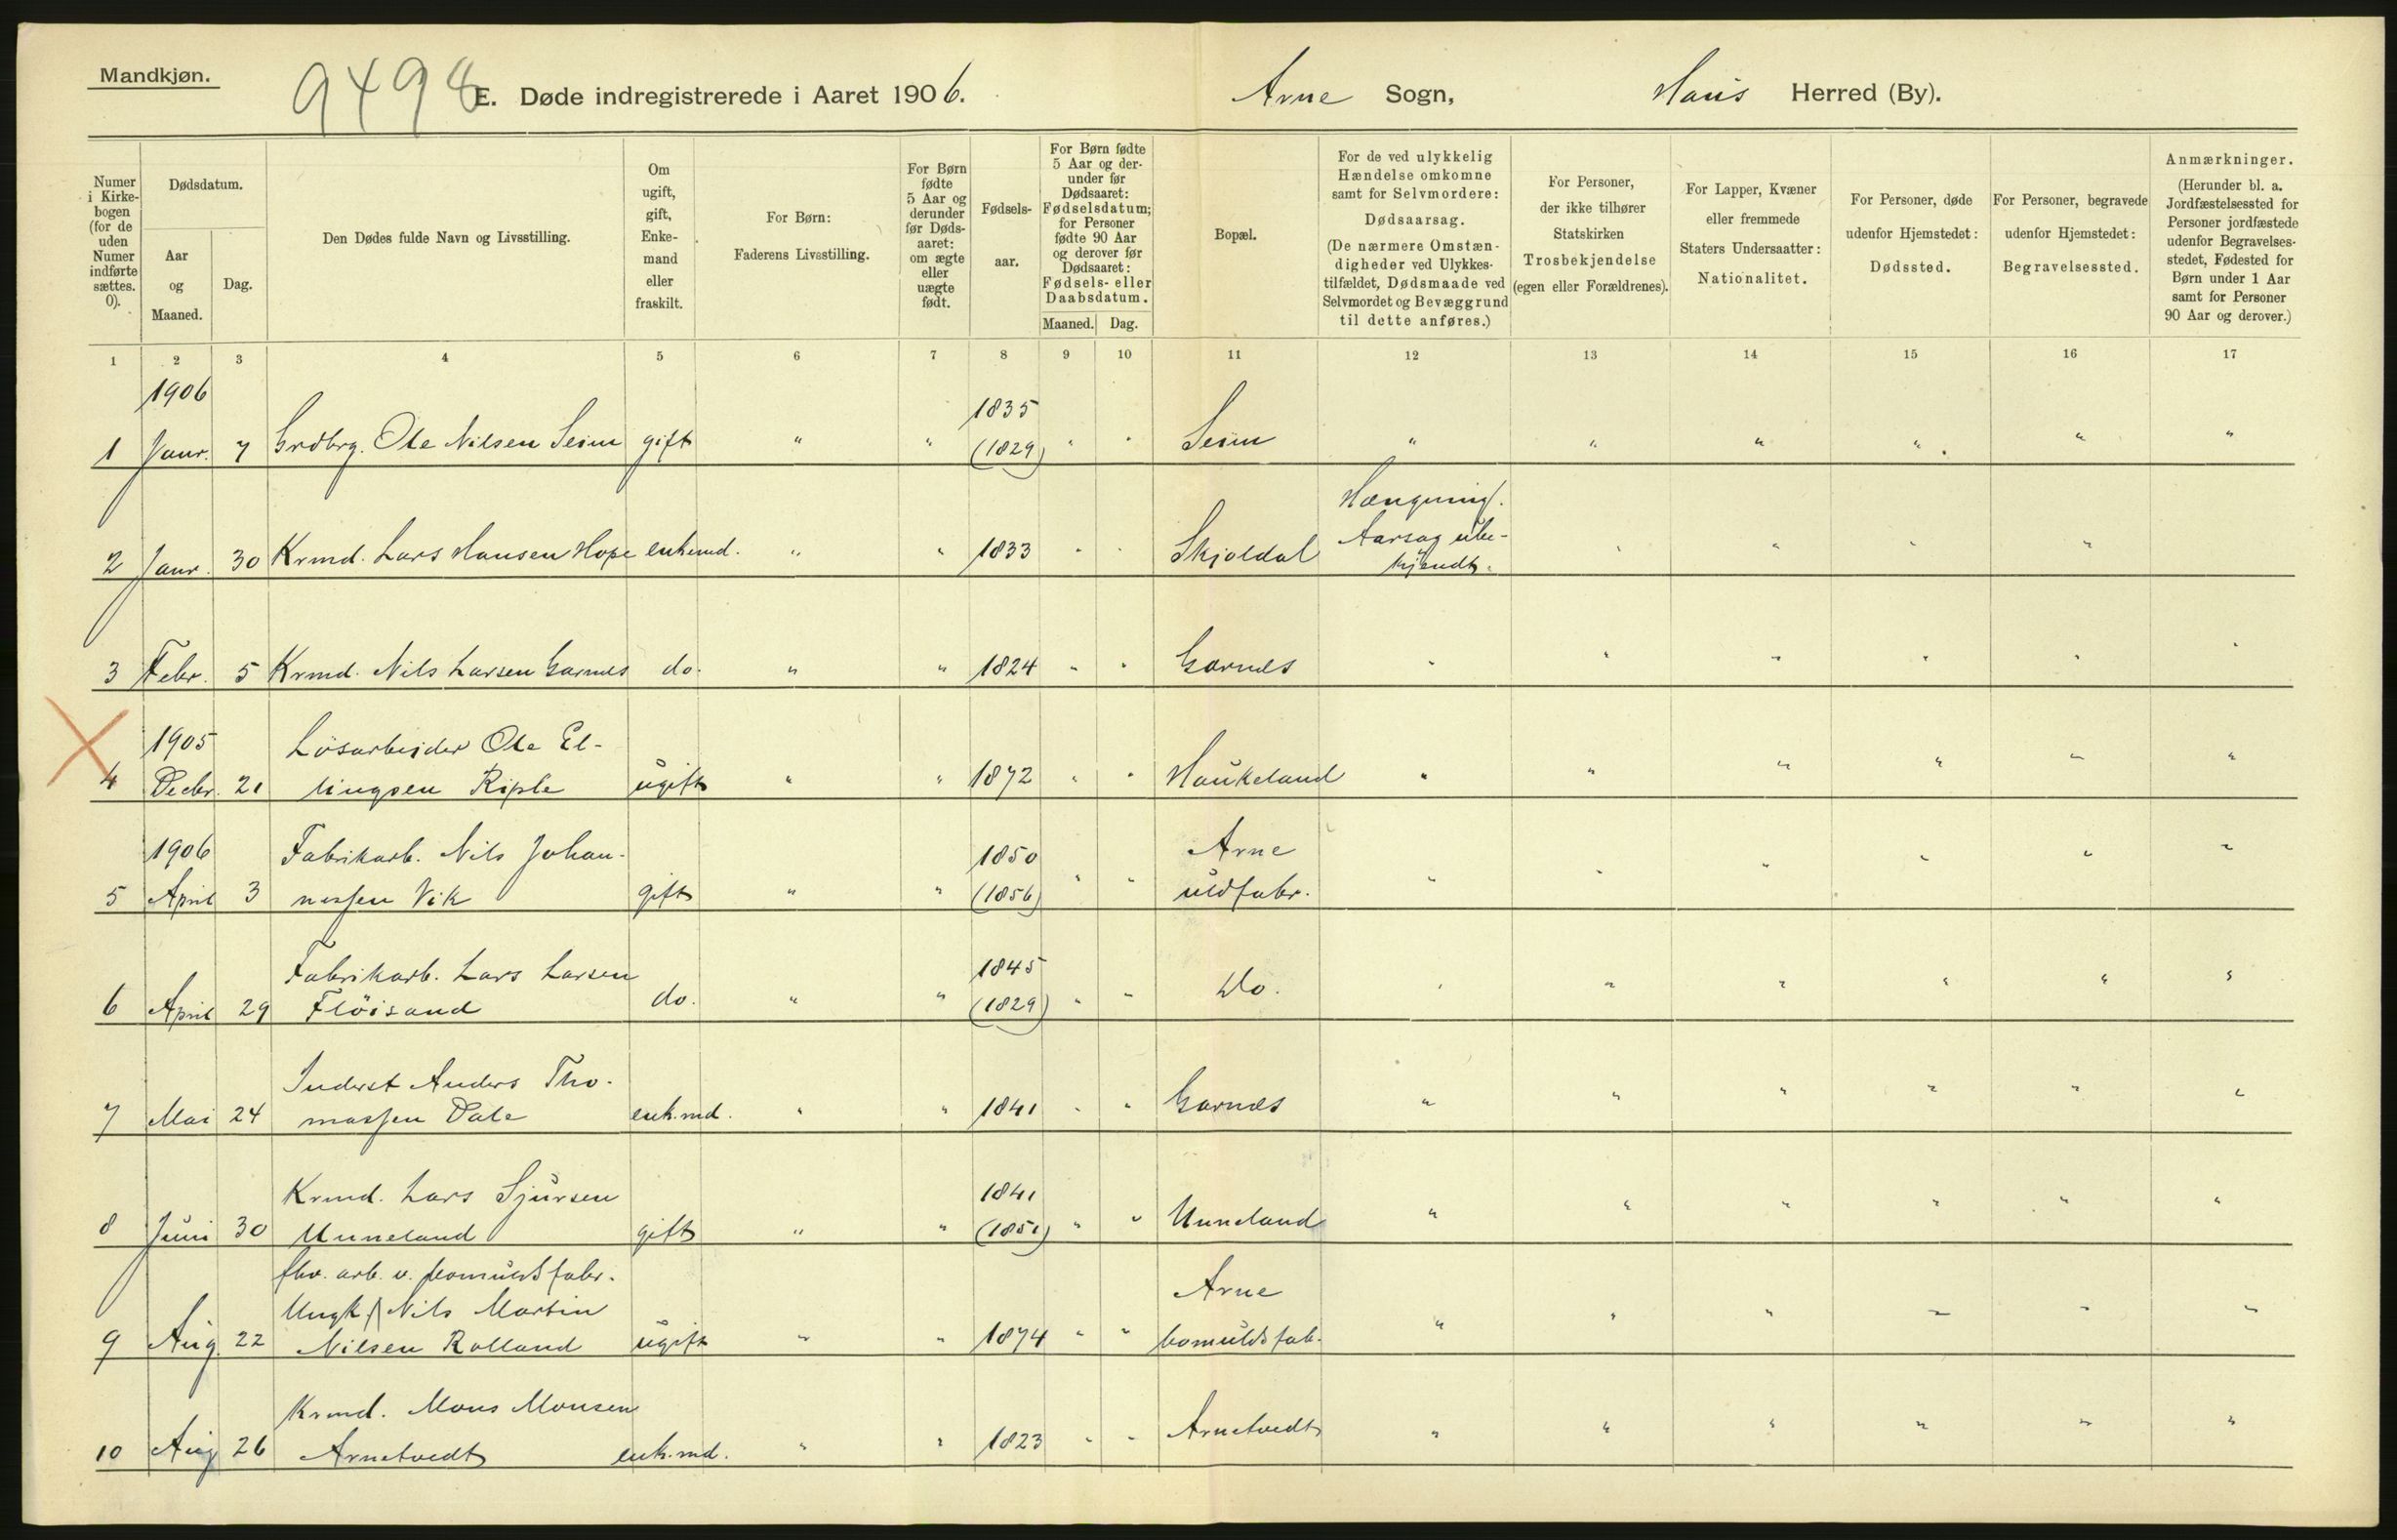 Mandkjøn.
9498
E. Døde indregistrerede i Aaret 1906.
Arne Sogn,
Haus Herred (By).
Numer i Kirke-bogen (for de uden Numer indførte sættes. 0).
Dødsdatum.
Aar og Maaned.
Dag.
Den Dødes fulde Navn og Livsstilling.
Om ugift, gift, Enke-mand eller fraskilt.
For Børn: Faderens Livsstilling.
For Børn fødte 5 Aar og derunder før Døds-aaret: om ægte eller uægte født.
Fødsels-aar.
For Børn fødte 5 Aar og der-under før Dødsaaret: Fødselsdatum; for Personer fødte 90 Aar og derover før Dødsaaret: Fødsels- eller Daabsdatum.
Maaned. Dag.
Bopæl.
For de ved ulykkelig Hændelse omkomne samt for Selvmordere: Dødsaarsag. (De nærmere Omstæn-digheder ved Ulykkes-tilfældet, Dødsmaade ved Selvmordet og Bevæggrund til dette anføres.)
For Personer, der ikke tilhører Statskirken Trosbekjendelse (egen eller Forældrenes).
For Lapper, Kvæner eller fremmede Staters Undersaatter: Nationalitet.
For Personer, døde udenfor Hjemstedet: Dødssted.
For Personer, begravede udenfor Hjemstedet: Begravelsessted.
Anmærkninger. (Herunder bl. a. Jordfæstelsessted for Personer jordfæstede udenfor Begravelses-stedet, Fødested for Børn under 1 Aar samt for Personer 90 Aar og derover.)
1 2 3 4 5 6 7 8 9 10 11 12 13 14 15 16 17
1906
1835
1 Janr. 7 Grdbrg. Ole Nilsen Seim gift " " (1829) " " Seim " " " " " "
Hængning.
Aarsag ube-
2 Janr. 30 Krmd. Lars Hansen Hope enkemd. " " 1833 " " Skjoldal kjendt. " " " "
3 Febr. 5 Krmd. Nils Larsen Garnes do. " " 1824 " " Garnes " " " " " "
1905 Løsarbeider Ole El-
4 Decbr. 21 lingsen Riple ugift " " 1872 " " Haukeland " " " " " "
1906 Fabrikarb. Nils Johan- 1850 Arne
5 April 3 nessen Vik gift " " (1856) " " uldfabr. " " " " " "
Fabrikarb. Lars Larsen 1845
6 April 29 Fløisand do. " " (1829) " " Do. " " " " " "
Inderst Anders Tho-
7 Mai 24 massen Dale enk.md. " " 1841 " " Garnes " " " " " "
Krmd. Lars Sjursen 1841
8 Juni 30 Unneland gift " " (1851) " " Unneland " " " " " "
fhv. arb. v. bomuldsfabr.
Ungk. Nils Martin Arne
9 Aug. 22 Nilsen Rolland ugift " " 1874 " " bomuldsfab. " " " " " "
Krmd. Mons Monsen
10 Aug 26 Arnetvedt enk.md. " " 1823 " " Arnetvedt " " " " " "